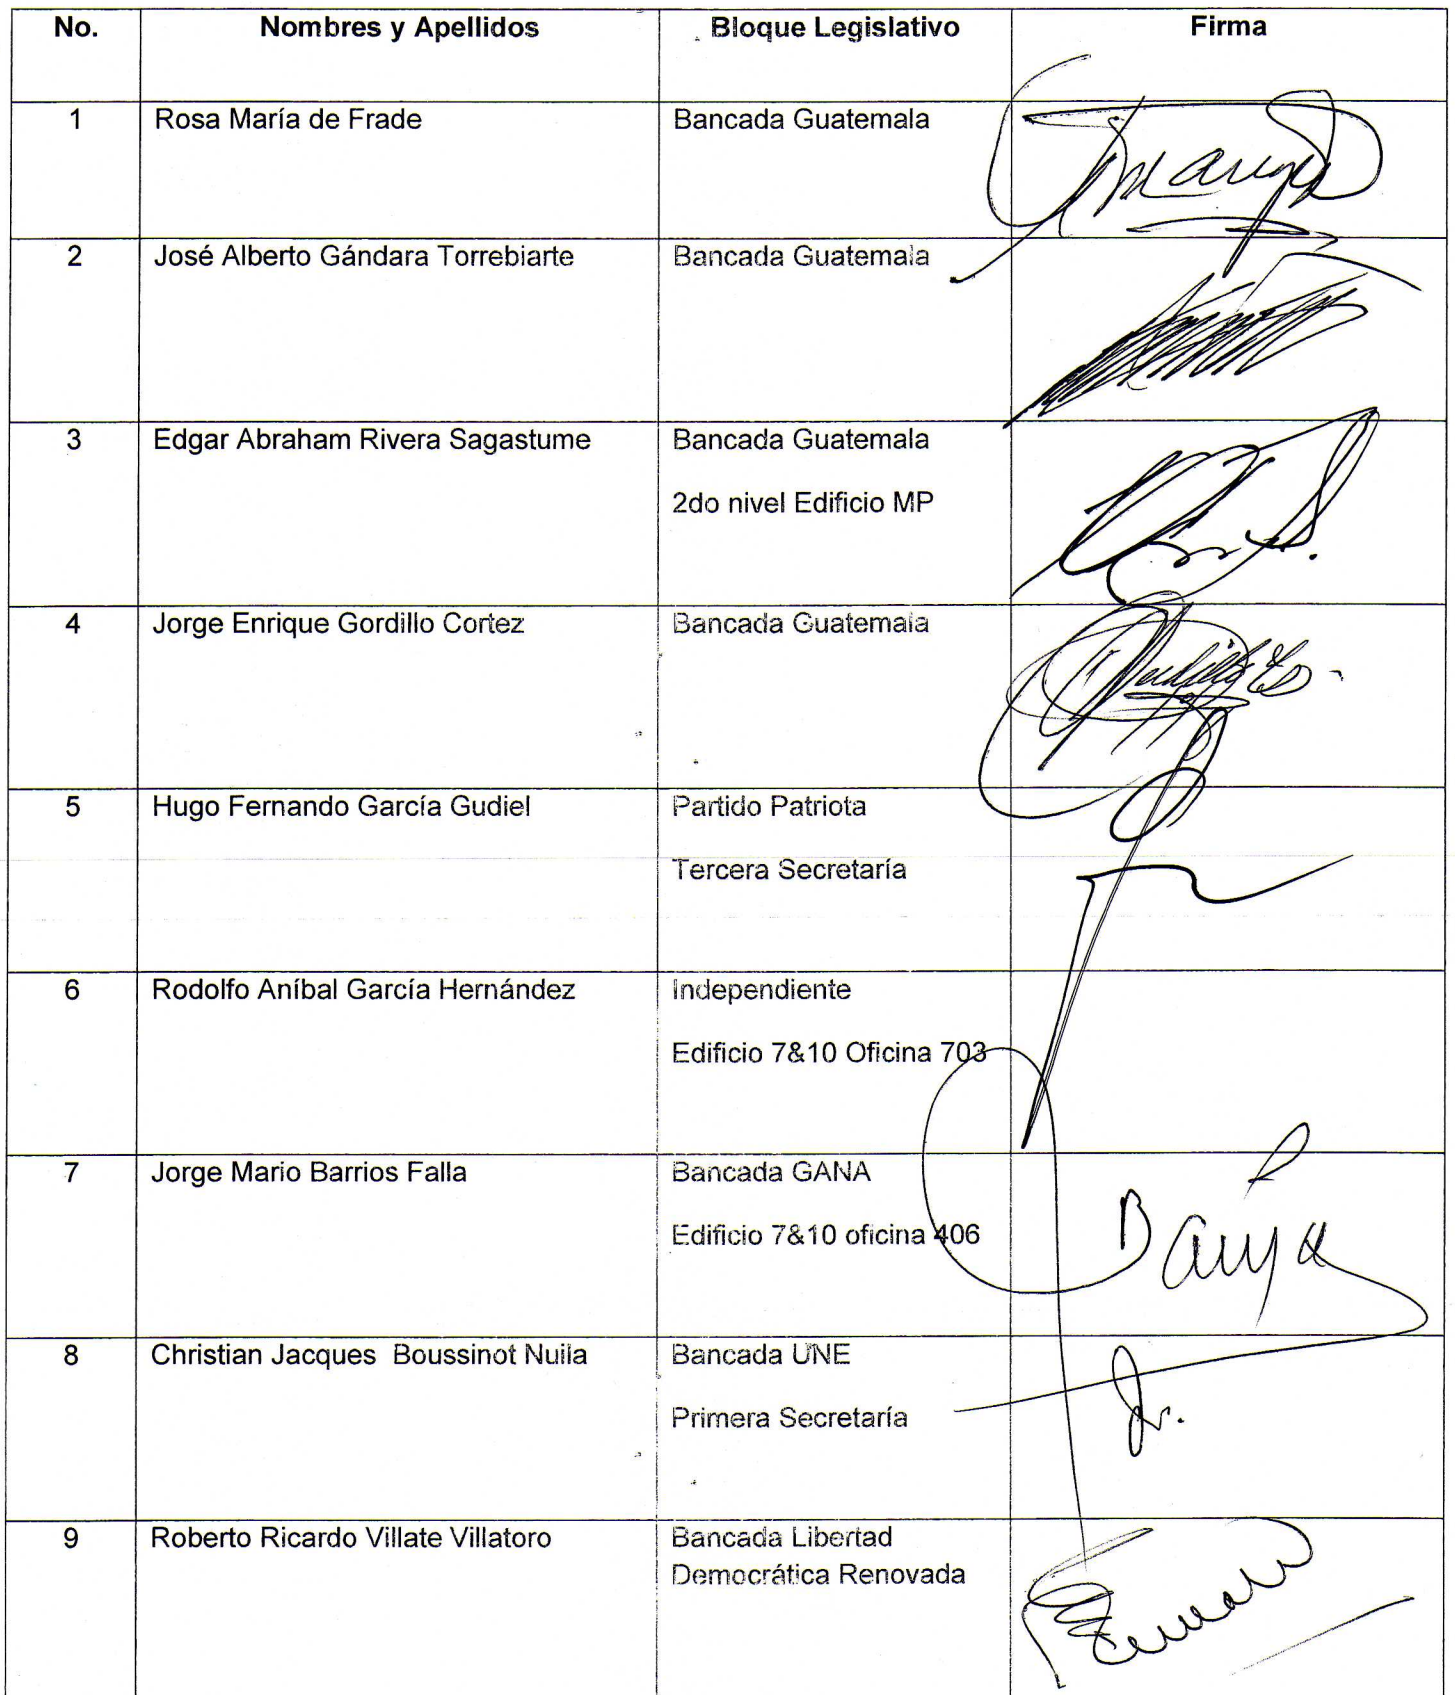 No. Nombres y Apellidos Bloque Legislativo Firma
1 Rosa María de Frade Bancada Guatemala
2 José Alberto Gándara Torrebiarte Bancada Guatemala
3 Edgar Abraham Rivera Sagastume Bancada Guatemala
2do nivel Edificio MP
4 Jorge Enrique Gordillo Cortez Bancada Guatemala
5 Hugo Fernando García Gudiel Partido Patriota
Tercera Secretaría
6 Rodolfo Aníbal García Hernández Independiente
Edificio 7&10 Oficina 703
7 Jorge Mario Barrios Falla Bancada GANA
Edificio 7&10 oficina 406
8 Christian Jacques Boussinot Nuila Bancada UNE
Primera Secretaría
Jr.
9 Roberto Ricardo Villate Villatoro Bancada Libertad
Democrática Renovada